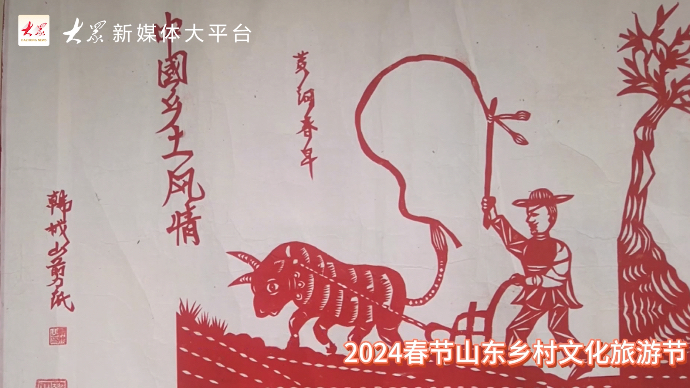 大众 新媒体大平台
中國乡土风情
黄河春早
山剪纸
2024春节山东乡村文化旅游节